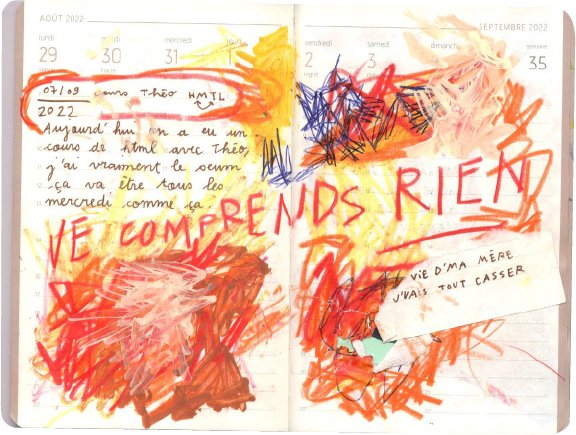 AOÛT 2022
SEPTEMBRE 2022
lundi mardi mercredi jeudi
29 30 31 1
vendredi samedi dimanche semaine
2 3 35
07/09 cours Théo HMTL
2022
Aujourd'hui on a eu un
cours de html avec Théo,
j'ai vraiment le seum
ça va être tous les
mercredi comme ça.
JE COMPRENDS RIEN
VIE D'MA MÈRE
J'VAIS TOUT CASSER